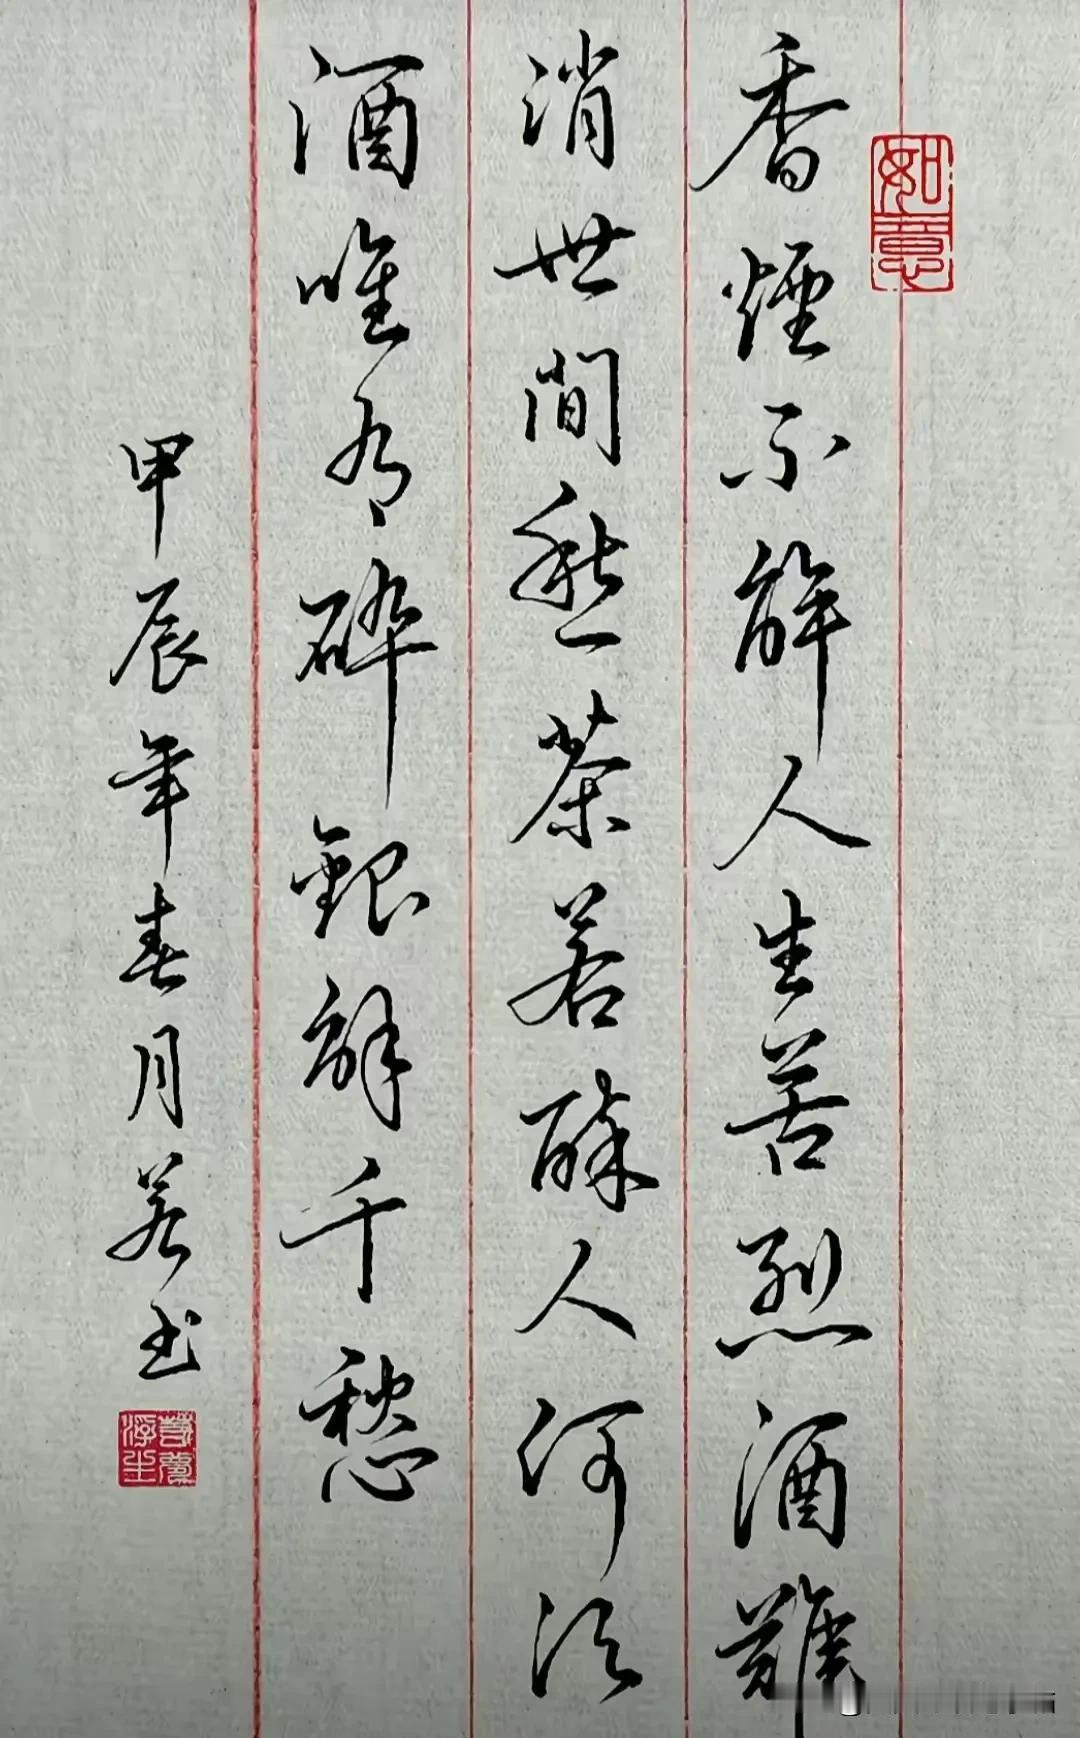 如意
香煙不解人生苦烈酒難
消世間愁茶若醉人何須
酒唯有碎銀解千愁
甲辰年春月若书
浮生